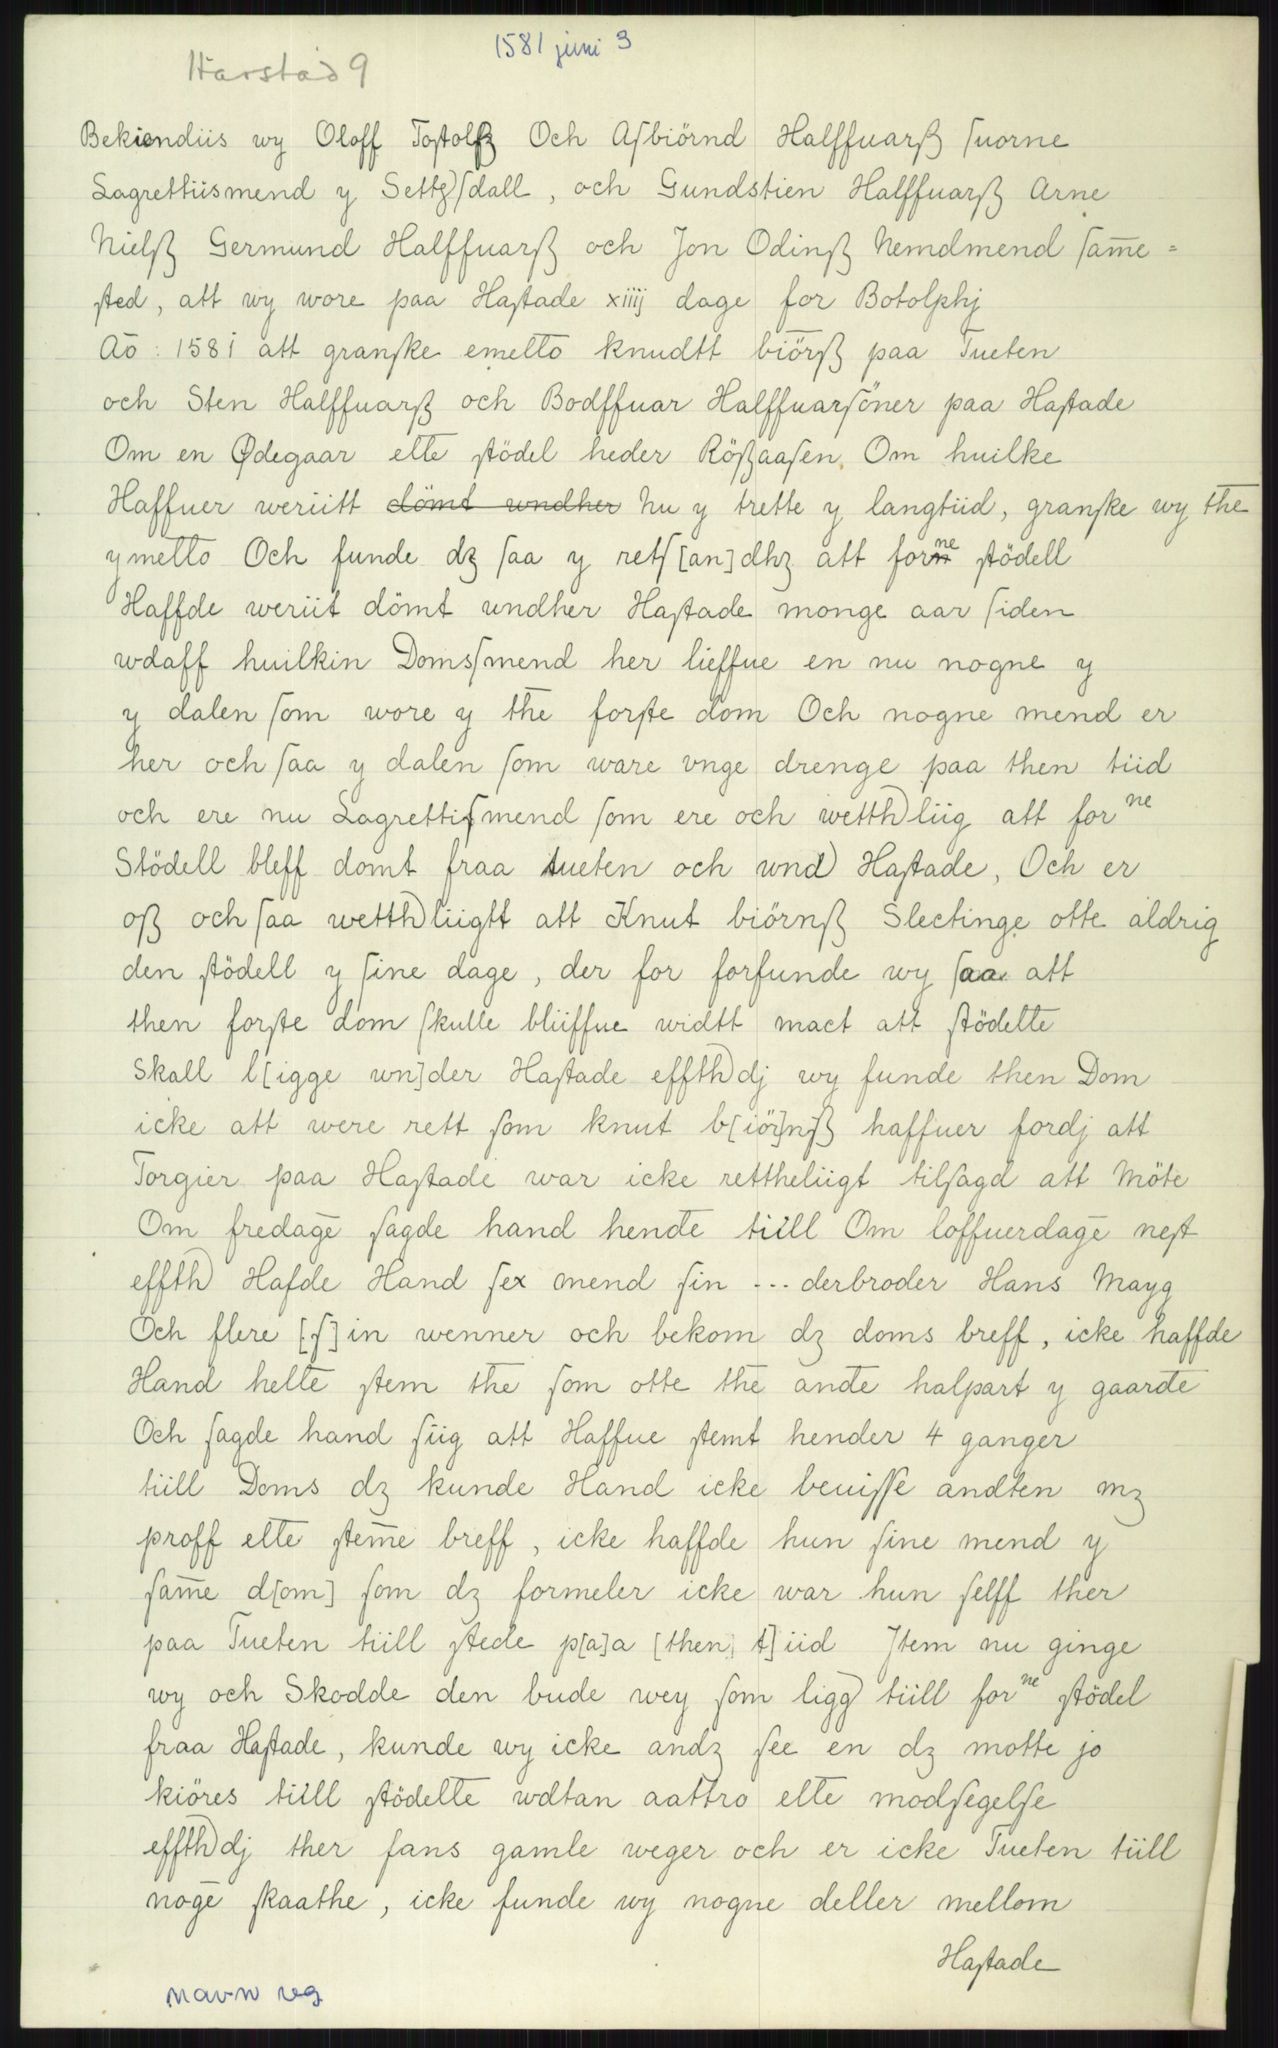 1581 juni 3
Harstad 9
Bekiendiis wy Oloff Toſtolſz Och Aſbiörnd Halffuarſz ſuorne
Lagrettiismend y Settzſdall, och Gundstien Halffuarſz Arne
Nielſz Germund Halffuarſz och Jon Odinſz Nemdmend ſam̅e=
sted, att wy wore paa Haſtade xiiij dage for Botolphj
Ao̅: 1581 att granſke emello knudtt biörſz paa Tueten
och Sten Halffuarſz och Bodffuar Halffuarſöner paa Haſtade
Om en Ødegaar elle ſtödel heder Röſzaaſen. Om huilke
Haffuer weriitt dömt undher Nu y trette y langtiid, granſke wy the̅
ymello Och funde dz ſaa y retſ[an]dhz att forne ſtödell
Haffde weriit dömt undher Haſtade monge aar ſiden
wdaff huilkin Domsſmend her lieffue en nu nogne y
y dalen ſom wore y the̅ forſte dom Och nogne mend er
her och ſaa y dalen ſom ware vnge drenge paa then tiid
och ere nu Lagrettiſmend ſom ere och wetth)liig att forne
Stödell bleff domt fraa tueten och und) Haſtade, Och er
oſz och ſaa wetth)liigtt att Knut biörnſz Slectinge otte aldrig
den ſtödell y ſine dage, der for forfunde wy ſaa att
then forſte dom ſkulle bliiffue widtt mact att ſtödelle
Skall l[igge un]der Haſtade effth)dj wy funde then Dom
icke att were rett ſom knut b[iör]nſz haffuer fordj att
Torgier paa Haſtade war icke rettheliigt tilſagd att Möte
Om fredage̅ ſagde hand hende̅ tiill Om loffuerdage̅ neſt
effth) Hafde Hand ſex mend ſin --- derbroder Hans Mayg
Och flere [ſ]in wenner och bekom dz doms breff, icke haffde
Hand helle̅ ſtem the̅ ſom otte the̅ ande̅ halpart y gaarde̅
Och ſagde hand ſiig att Haffue ſtemt hender 4 ganger
tiill Doms dz kunde Hand icke beuiſſe andten mz
proff elle̅ ſtem̅e breff, icke haffde hun ſine mend y
ſam̅e d[om] ſom dz formeler icke war hun ſelff ther
paa Tueten tiill ſtede p[a]a [then t]iid Jtem nu ginge
wy och Skodde den bude wey ſom ligg) tiill forne ſtödel
fraa Haſtade, kunde wy icke andz ſee en dz motte jo
kiöres tiill ſtödelle wdtan aattro elle̅ modſegelſe
effth)dj ther fans gamle weger och er icke Tueten tiill
noge̅ ſkaathe, icke funde wy nogne deller mellom
Haſtade
navn reg